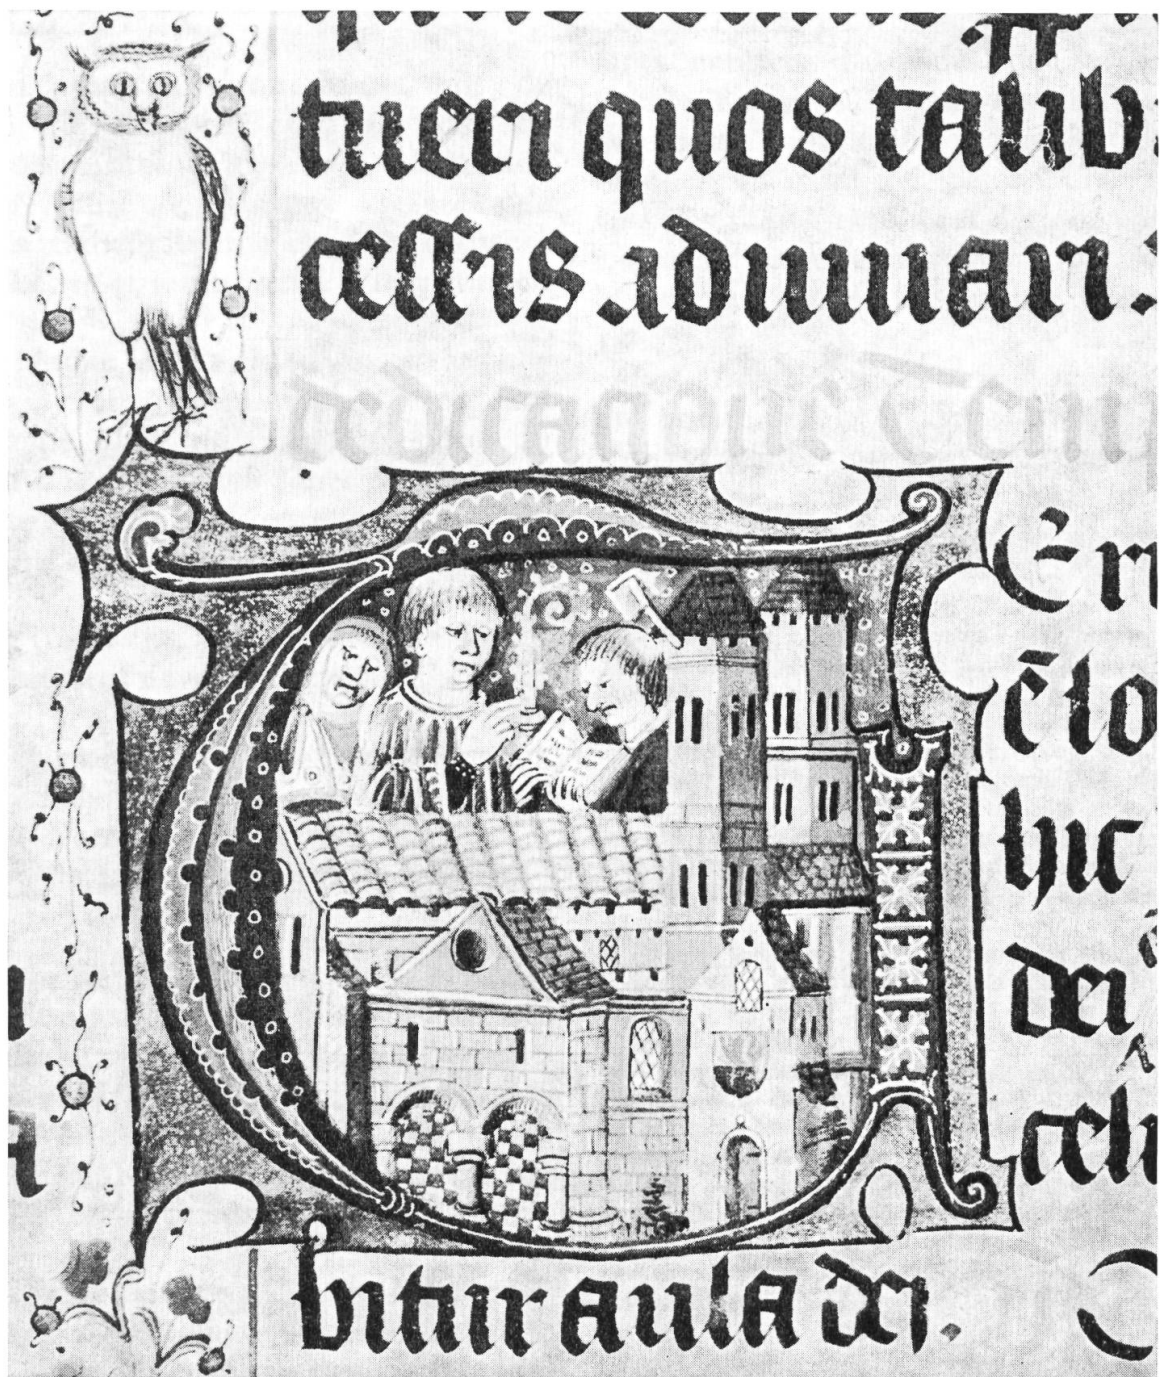 tueri quos talib
cessis adiuuari.
dedicacione Tem
TEr
ē lo
hic
dei
celi
bitur aula dei.